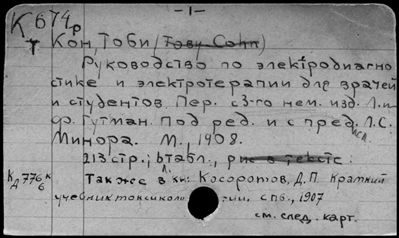 - 1 -
К 674р
т
Кон, Тоби (Toby Cohn)
Руководство по электродиагно
стике и электротерапии для врачей
и студентов. Пер. с 3-го нем. изд. Л. и
Ф. Гутман. Под ред. и с пред. Л.С.
Минора. М., 1908.
213 стр.; 6 табл.,
Также в кн: Косоротов, Д.П. Краткий
учебник токсикологии. СПб., 1907
см. след. карт.